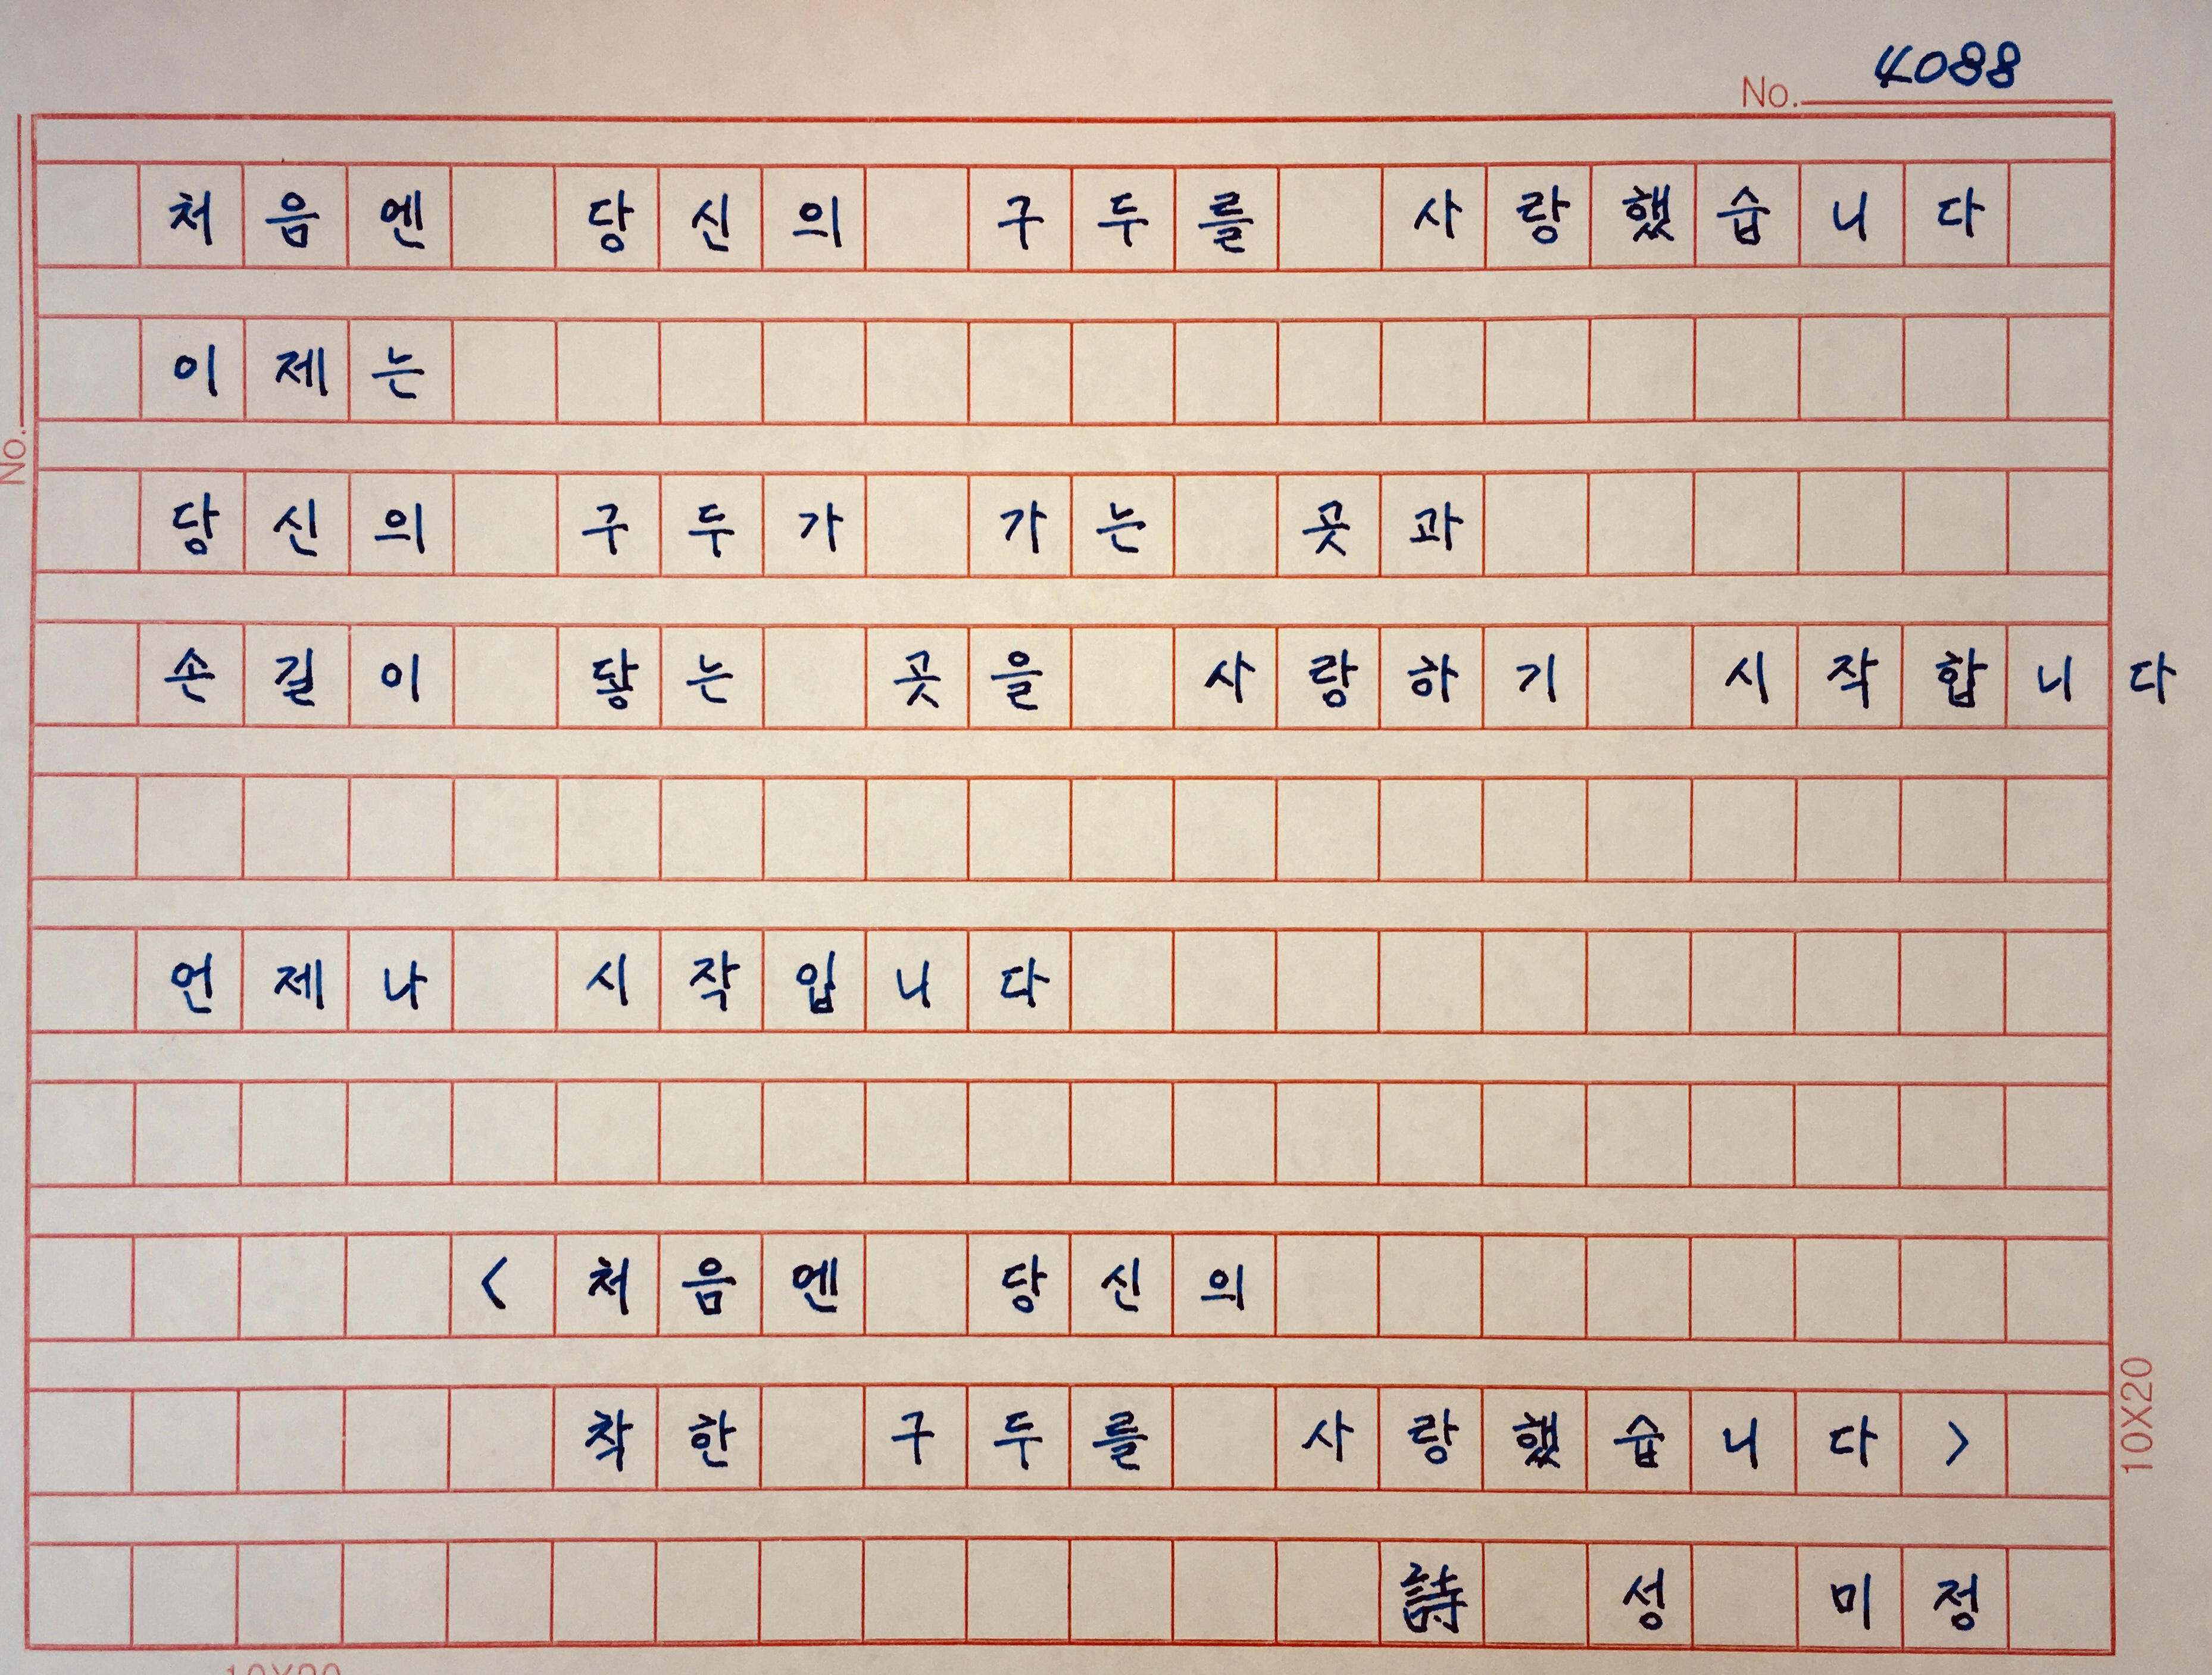 No. 4088
처음엔 당신의 구두를 사랑했습니다
이제는
No.
당신의 구두가 가는 곳과
손길이 닿는 곳을 사랑하기 시작합니다
언제나 시작입니다
<처음엔 당신의
착한 구두를 사랑했습니다>
10X20
詩 성 미정
10X20